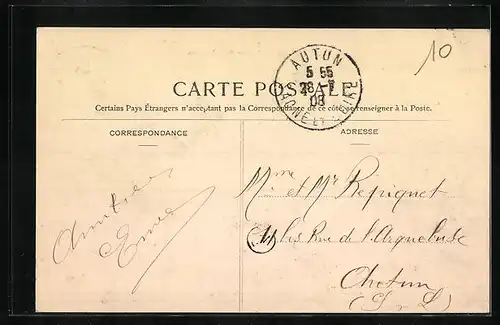 10
AUTUN
5 55
28 - 7
08
SAONE ET LOIRE
CARTE POSTALE
Certains Pays Étrangers n'acceptant pas la Correspondance de ce côté, se renseigner à la Poste.
CORRESPONDANCE
ADRESSE
Amitiés
Mme et Mr Repiquet
Rue de l'Arquebuse
(S. L)